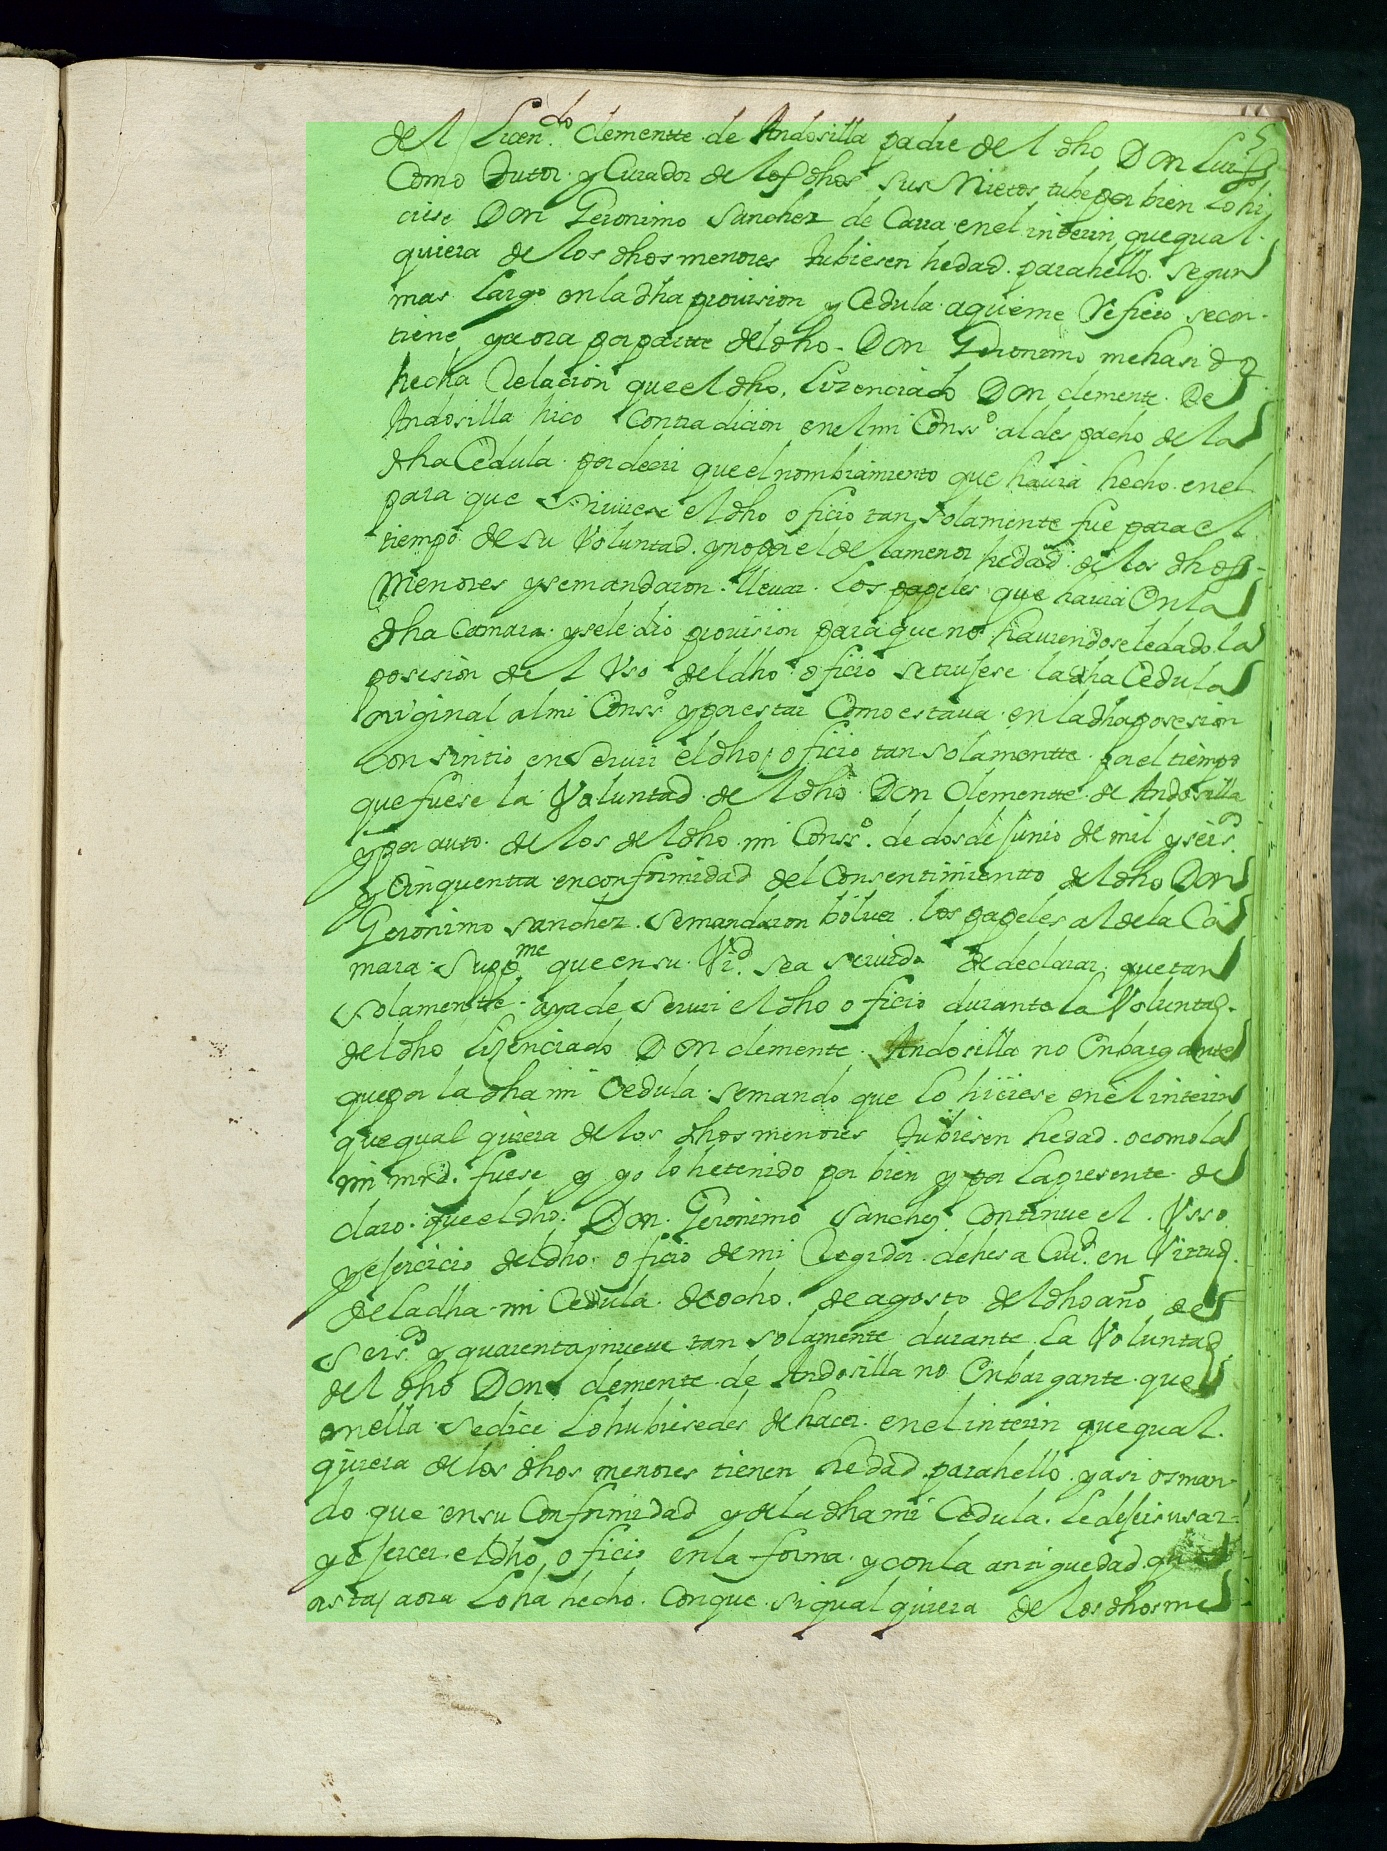 del Licen.do Clementte de Andosilla padre del dho Don Luis
Como tutor y Curador de los dhos sus Nietos tube por bien lo hi
ciese Don Geronimo Sanchez de Caua en el interin que qual
quiera de los dhos menores tubiesen hedad para hello segun
mas largo en la dha provision y Cedula a que me Refiero se con
tiene y aora por partte del dho Don Geronimo me ha sido
hecha Relacion que el dho Lizenciado Don clemente De
Andosilla hico Contradicion en el mi Conss.o al despacho de la
dha Cedula por decir que el nombramiento que hauia hecho en el
para que sirviese el dho oficio tan solamente fue para el
tiempo de su Voluntad y no por el de la menor hedad de los dhos
Menores y se mandaron lleuar los papeles que hauia En la
dha Camara y se le dio provision para que no hauiendosele dado la
posesion del Vso del dho oficio se trujese la dha Cedula
original al mi Conss.o y por estar Como estaua en la dha posesion
Consintio en Seruir el dho oficio tan solamentte por el tiempo
que fuese la Voluntad del dho Don Clementte de Andosilla
y por auto de los del dho mi Conss.o de dos de Junio de mil y seis.os
y Cinquentta en conformidad del Consentimientto del dho Don
Geronimo Sanchez se mandaron boluer los papeles al de la Ca
mara Sup.me que en su Vi.d sea seruido de declarar que tan
solamentte aya de Seruir el dho oficio durante la Voluntad
del dho Lizenciado Don clemente Andosilla no Enbargante
que por la dha mi Cedula se mando que lo hiciese en el interin
que qual quiera de los dhos menores tubiesen hedad o como la
mi mrd. fuese y yo lo he tenido por bien y por la presente de
claro que el dho Don Geronimo Sanchez Continue el Vsso
y ejercicio del dho oficio de mi Regidor de hesa Ciu.d en Virtud
de la dha mi Cedula de ocho de agosto del dho año de
Seis.os y quarenta y nueue tan solamente durante la Voluntad
del dho Don clemente de Andosilla no Enbargante que
en ella se dice lo hubiesedes de hacer en el interin que qual
quiera de los dhos menores tienen hedad para hello y asi os man
do que en su Conformidad y de la dha mi Cedula le dejeis usar
y ejercer el dho oficio en la forma y con la antiguedad que
asta aora lo ha hecho Con que si qual quiera de los dhos me